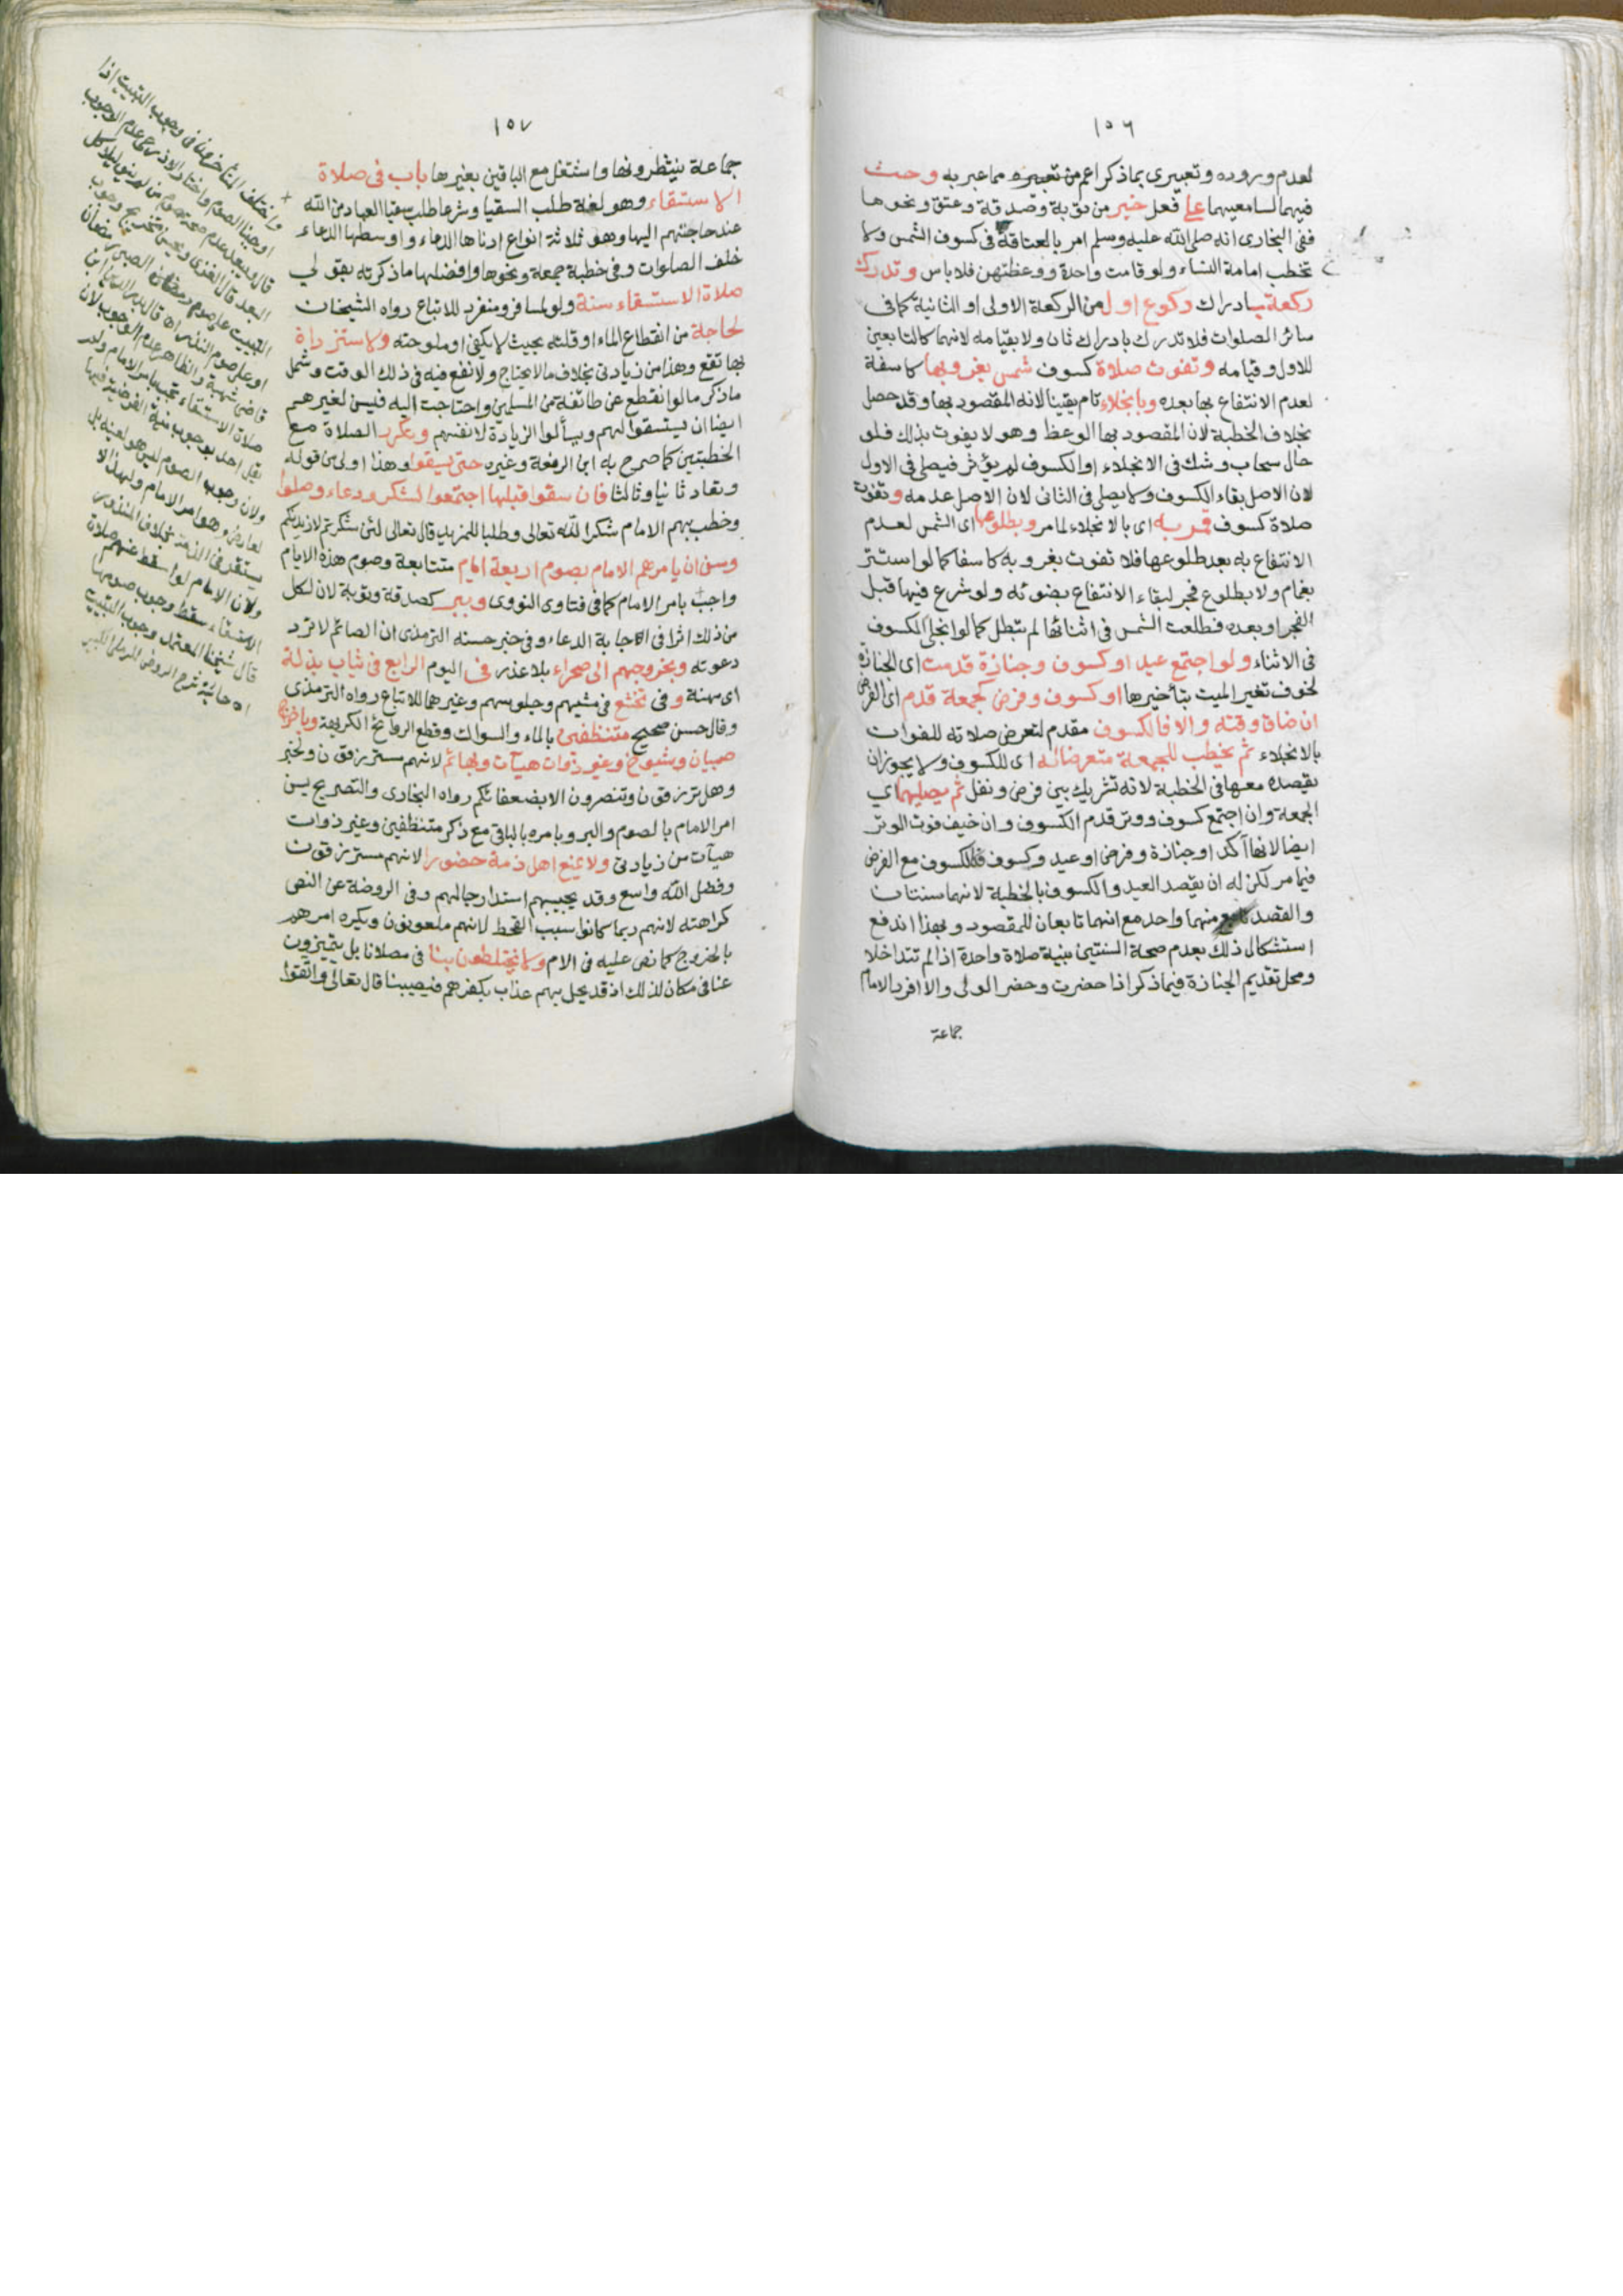 ١٥٦
لعدم وروده وتعبيري بما ذكر اعم من تعبيره مما عبر به وحث
فيهما لسامعيهما على فعل خير من توبة وصدقة وعتق ونحوها
ففي البخاري انه صلى الله عليه وسلم امر بالعتاقة في كسوف الشمس ولا
تخطب امامة النساء ولو قامت واحدة ووعظتهن فلا باس وتدرك
ركعة بادراك ركوع اول من الركعة الاولى او الثانية كما في
سائر الصلوات فلا تدرك بادراك ثان ولا بقيامه لانهما كالتابعين
للاول وقيامه وتفوت صلاة كسوف شمس بغروبها كاسفة
لعدم الانتفاع بها بعده وبانجلاء تام يقينا لانه المقصود بها وقد حصل
بخلاف الخطبة لان المقصود بها الوعظ وهو لا يفوت بذلك فلو
حال سحاب وشك في الانجلاء او الكسوف لم يؤثر فيصلي في الاول
لان الاصل بقاء الكسوف ولا يصلي في الثاني لان الاصل عدمه وتفوت
صلاة كسوف قمر به اى بالانجلاء لما مر وبطلوعها اى الشمس لعدم
الانتفاع به بعد طلوعها فلا تفوت بغروبه كاسفا كما لو استتر
بغمام ولا بطلوع فجر لبقاء الانتفاع بضوئه ولو شرع فيها قبل
الفجر او بعده فطلعت الشمس في اثنائها لم تبطل كما لو انجلى الكسوف
فى الاثناء ولو اجتمع عيد او كسوف وجنازة قدمت اى الجنازة
لخوف تغير الميت بتأخيرها او كسوف وفرض كجمعة قدم اى الفرض
ان ضاق وقته والا فالكسوف مقدم لتعرض صلاته للفوات
بالانجلاء ثم يخطب للجمعة متعرضا له اى للكسوف ولا يجوز ان
يقصده معها في الخطبة لانه تشريك بين فرض ونفل ثم يصليها اي
الجمعة وان اجتمع كسوف ووتر قدم الكسوف وان خيف فوت الوتر
ايضا لانها آكد او جنازة وفرض او عيد وكسوف فكالكسوف مع الفرض
فيما مر لكن له ان يقصد العيد والكسوف بالخطبة لانهما سنتان
والقصد منهما واحد مع انهما تابعان للمقصود وبهذا اندفع
استشكال ذلك بعدم صحة السنتين بنية صلاة واحدة اذا لم تتداخلا
ومحل تقديم الجنازة فيما ذكر اذا حضرت وحضر الولي والا افرد الامام
جماعة
١٥٧
جماعة ينتظرونها واشتغل مع الباقين بغيرها باب في صلاة
الاستسقاء وهو لغة طلب السقيا وشرعا طلب سقيا العباد من الله
عند حاجتهم اليها وهو ثلاثة انواع ادناها الدعاء واوسطها الدعاء
خلف الصلوات وفي خطبة جمعة ونحوها وافضلها ما ذكرته بقولي
صلاة الاستسقاء سنة ولو لمسافر ومنفرد للاتباع رواه الشيخان
لحاجة من انقطاع الماء او قلته بحيث لا يكفي او ملوحته ولاستزادة
بها نفع وهذا من زيادتي بخلاف ما لا يحتاج ولا نفع فيه في ذلك الوقت وشمل
ما ذكر ما لو انقطع عن طائفة من المسلمين واحتاجت اليه فيسن لغيرهم
ايضا ان يستسقوا لهم ويسألوا الزيادة لانفسهم وتكرر الصلاة مع
الخطبتين كما صرح به ابن الرفعة وغيره حتى يسقوا وهذا اولى من قوله
وتعاد ثانيا وثالثا فان سقوا قبلها اجتمعوا لشكر ودعاء وصلوا
وخطب بهم الامام شكرا لله تعالى وطلبا للمزيد قال تعالى لئن شكرتم لازيدنكم
وسن ان يامرهم الامام بصوم اربعة ايام متتابعة وصوم هذه الايام
واجب بامر الامام كما في فتاوى النووي وببر كصدقة وتوبة لان لكل
من ذلك اثرا في اجابة الدعاء وفي خبر حسنه الترمذى ان الصائم لا ترد
دعوته وبخروجهم الى صحراء بلا عذر فى اليوم الرابع في ثياب بذلة
اى مهنة وفى تخشع في مشيهم وجلوسهم وغيرهما للاتباع رواه الترمذى
وقال حسن صحيح متنظفين بالماء والسواك وقطع الروائح الكريهة وباخراج
صبيان وشيوخ وغير ذوات هيآت وبهائم لانهم مسترزقون ولخبر
وهل ترزقون وتنصرون الا بضعفائكم رواه البخارى والتصريح بسن
امر الامام بالصوم والبر وبامره بالباقي مع ذكر متنظفين وغير ذوات
هيآت من زيادتي ولا يمنع اهل ذمة حضورا لانهم مسترزقون
وفضل الله واسع وقد يجيبهم استدراجا لهم وفى الروضة عن النص
كراهته لانهم ربما كانوا سبب القحط لانهم ملعونون ويكره امرهم
بالخروج كما نص عليه في الام ولا يختلطون بنا في مصلانا بل يتميزون
عنا في مكان لذلك اذ قد يحل بهم عذاب بكفرهم فيصيبنا قال تعالى واتقوا
واختلف المتأخرون في وجوب التبييت اذا
اوجبنا الصوم واختار الاذرعي عدم الوجوب
قال ويبعد عدم صحة صوم من لم ينو ليلا كل
البعد قال الغزي ويحسن تخريج وجوب
التبييت على صوم الصبي رمضان
او على صوم النذر اه قال بدر الدين ابن
قاضي شهبة والظاهر عدم الوجوب لان
صلاة الاستسقاء تجب بامر الامام ولم
يقل احد بوجوب نية الفرضية فيها
ولان وجوب الصوم ليس هو لعينه بل
لعارض وهو امر الامام ولهذا لا
يستقر في الذمة بخلاف المنذور
ولان الامام لو اسقط عنهم صلاة
الاستسقاء سقط وجوب صومها
قال شيخنا المعتمد وجوب التبييت
اه حاشية شرح الروض للرملي الكبير